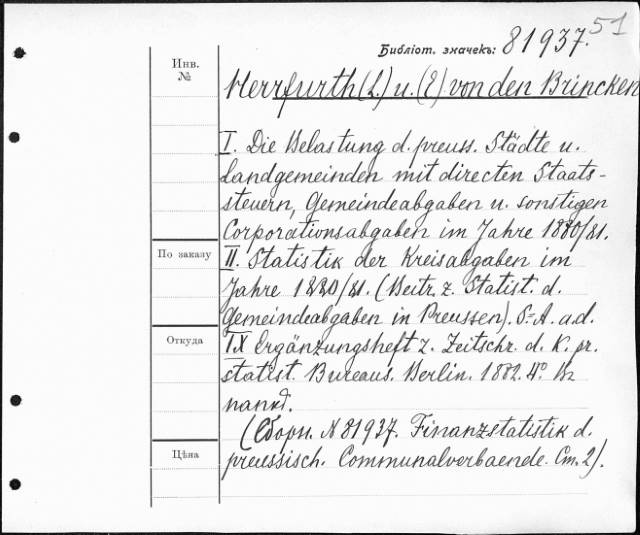 51
Библіот. значекъ: 81937.
Инв.
№
Herrfurth (L.) u. (E) von den Brincken
I. Die Belastung d. preuss. Städte u.
Landgemeinden mit directen Staats-
steuern, Gemeindeabgaben u. sonstigen
Corporationsabgaben im Jahre 1880/81.
По заказу
II. Statistik der Kreisabgaben im
Jahre 1880/81. (Beitr. z. Statist. d.
Gemeindeabgaben in Preussen). S-A. a. d.
Откуда
IX Ergänzungsheft z. Zeitschr. d. K. pr.
statist. Bureaus. Berlin. 1882. 4° Въ
папкѣ.
(Сборн. № 81937. Finanzstatistik d.
Цѣна
preussisch. Communalverbaende. Cm. 2).